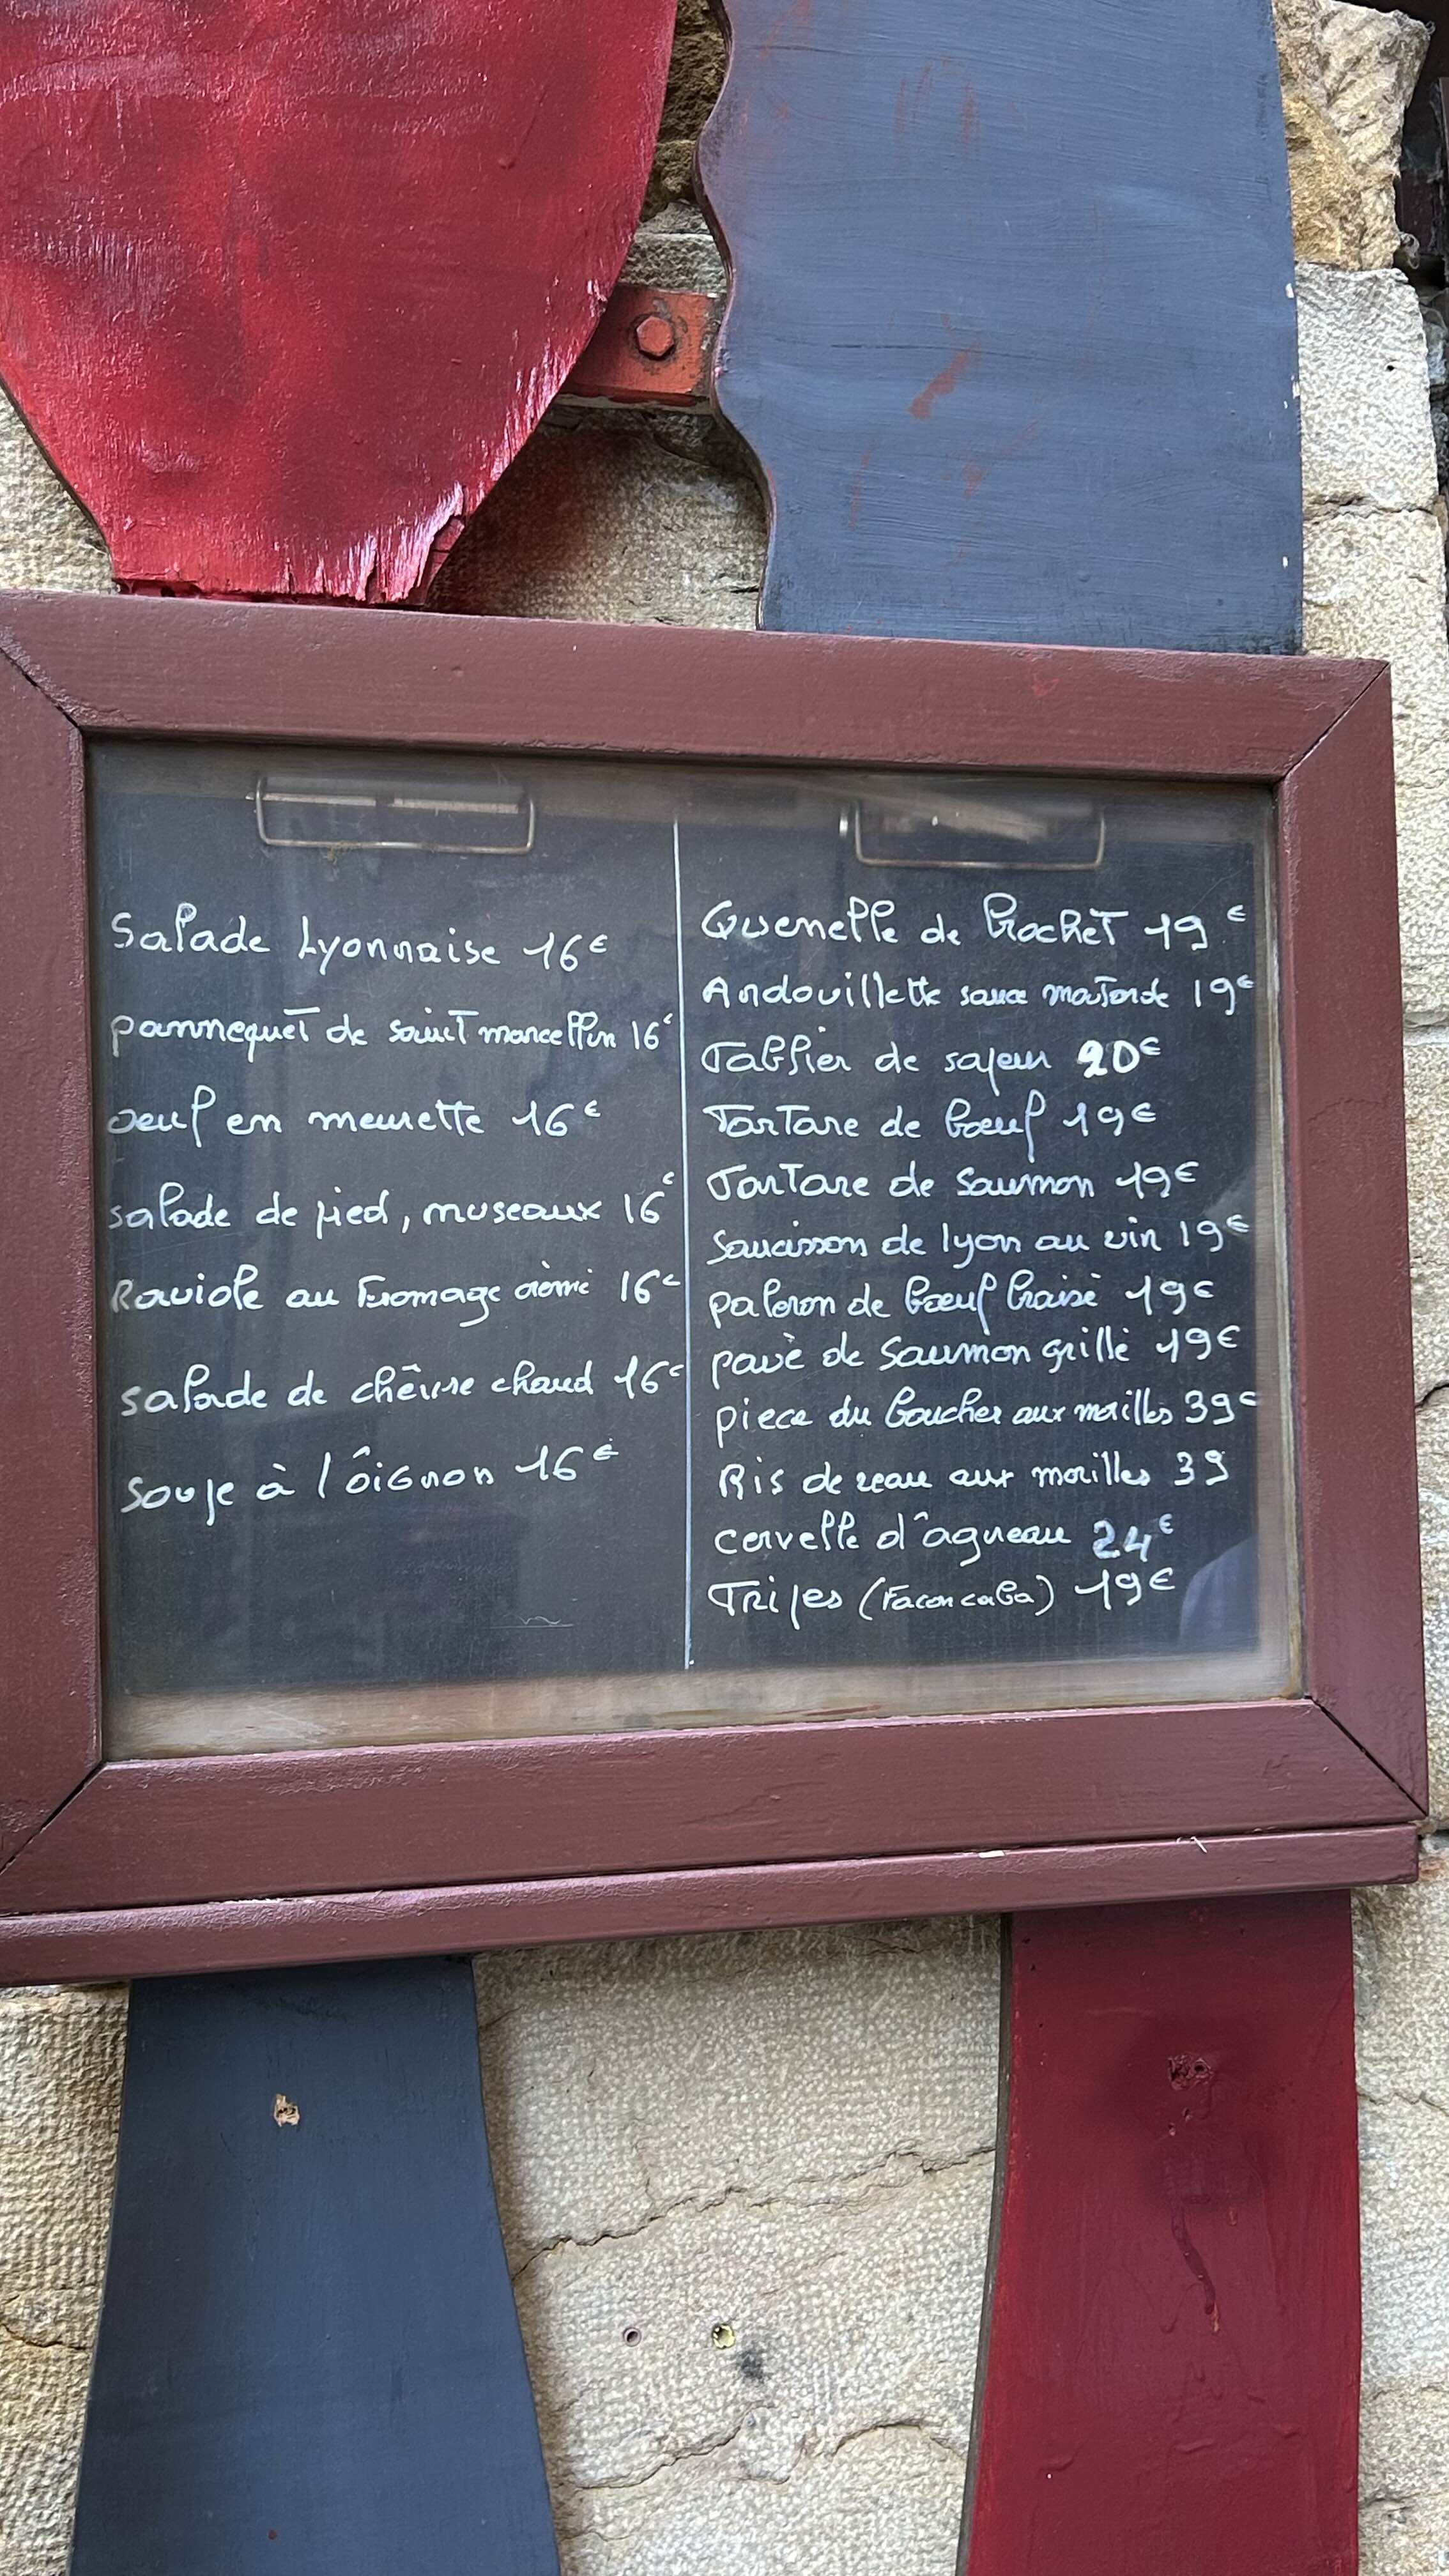 Salade Lyonnaise 16€
pannequet de saint marcellin 16€
oeuf en meurette 16€
salade de pied, museaux 16€
Raviole au Fromage crèmé 16€
salade de chêvre chaud 16€
soupe à l'ôignon 16€
Quenelle de brochet 19€
Andouillette sauce moutarde 19€
Tablier de sapeur 20€
Tartare de boeuf 19€
Tartare de Saumon 19€
Saucisson de lyon au vin 19€
paleron de boeuf braisé 19€
pavè de Saumon grillé 19€
piece du boucher aux morilles 39€
Ris de veau aux morilles 39
cervelle d'agneau 24€
Tripes (Facon caba) 19€